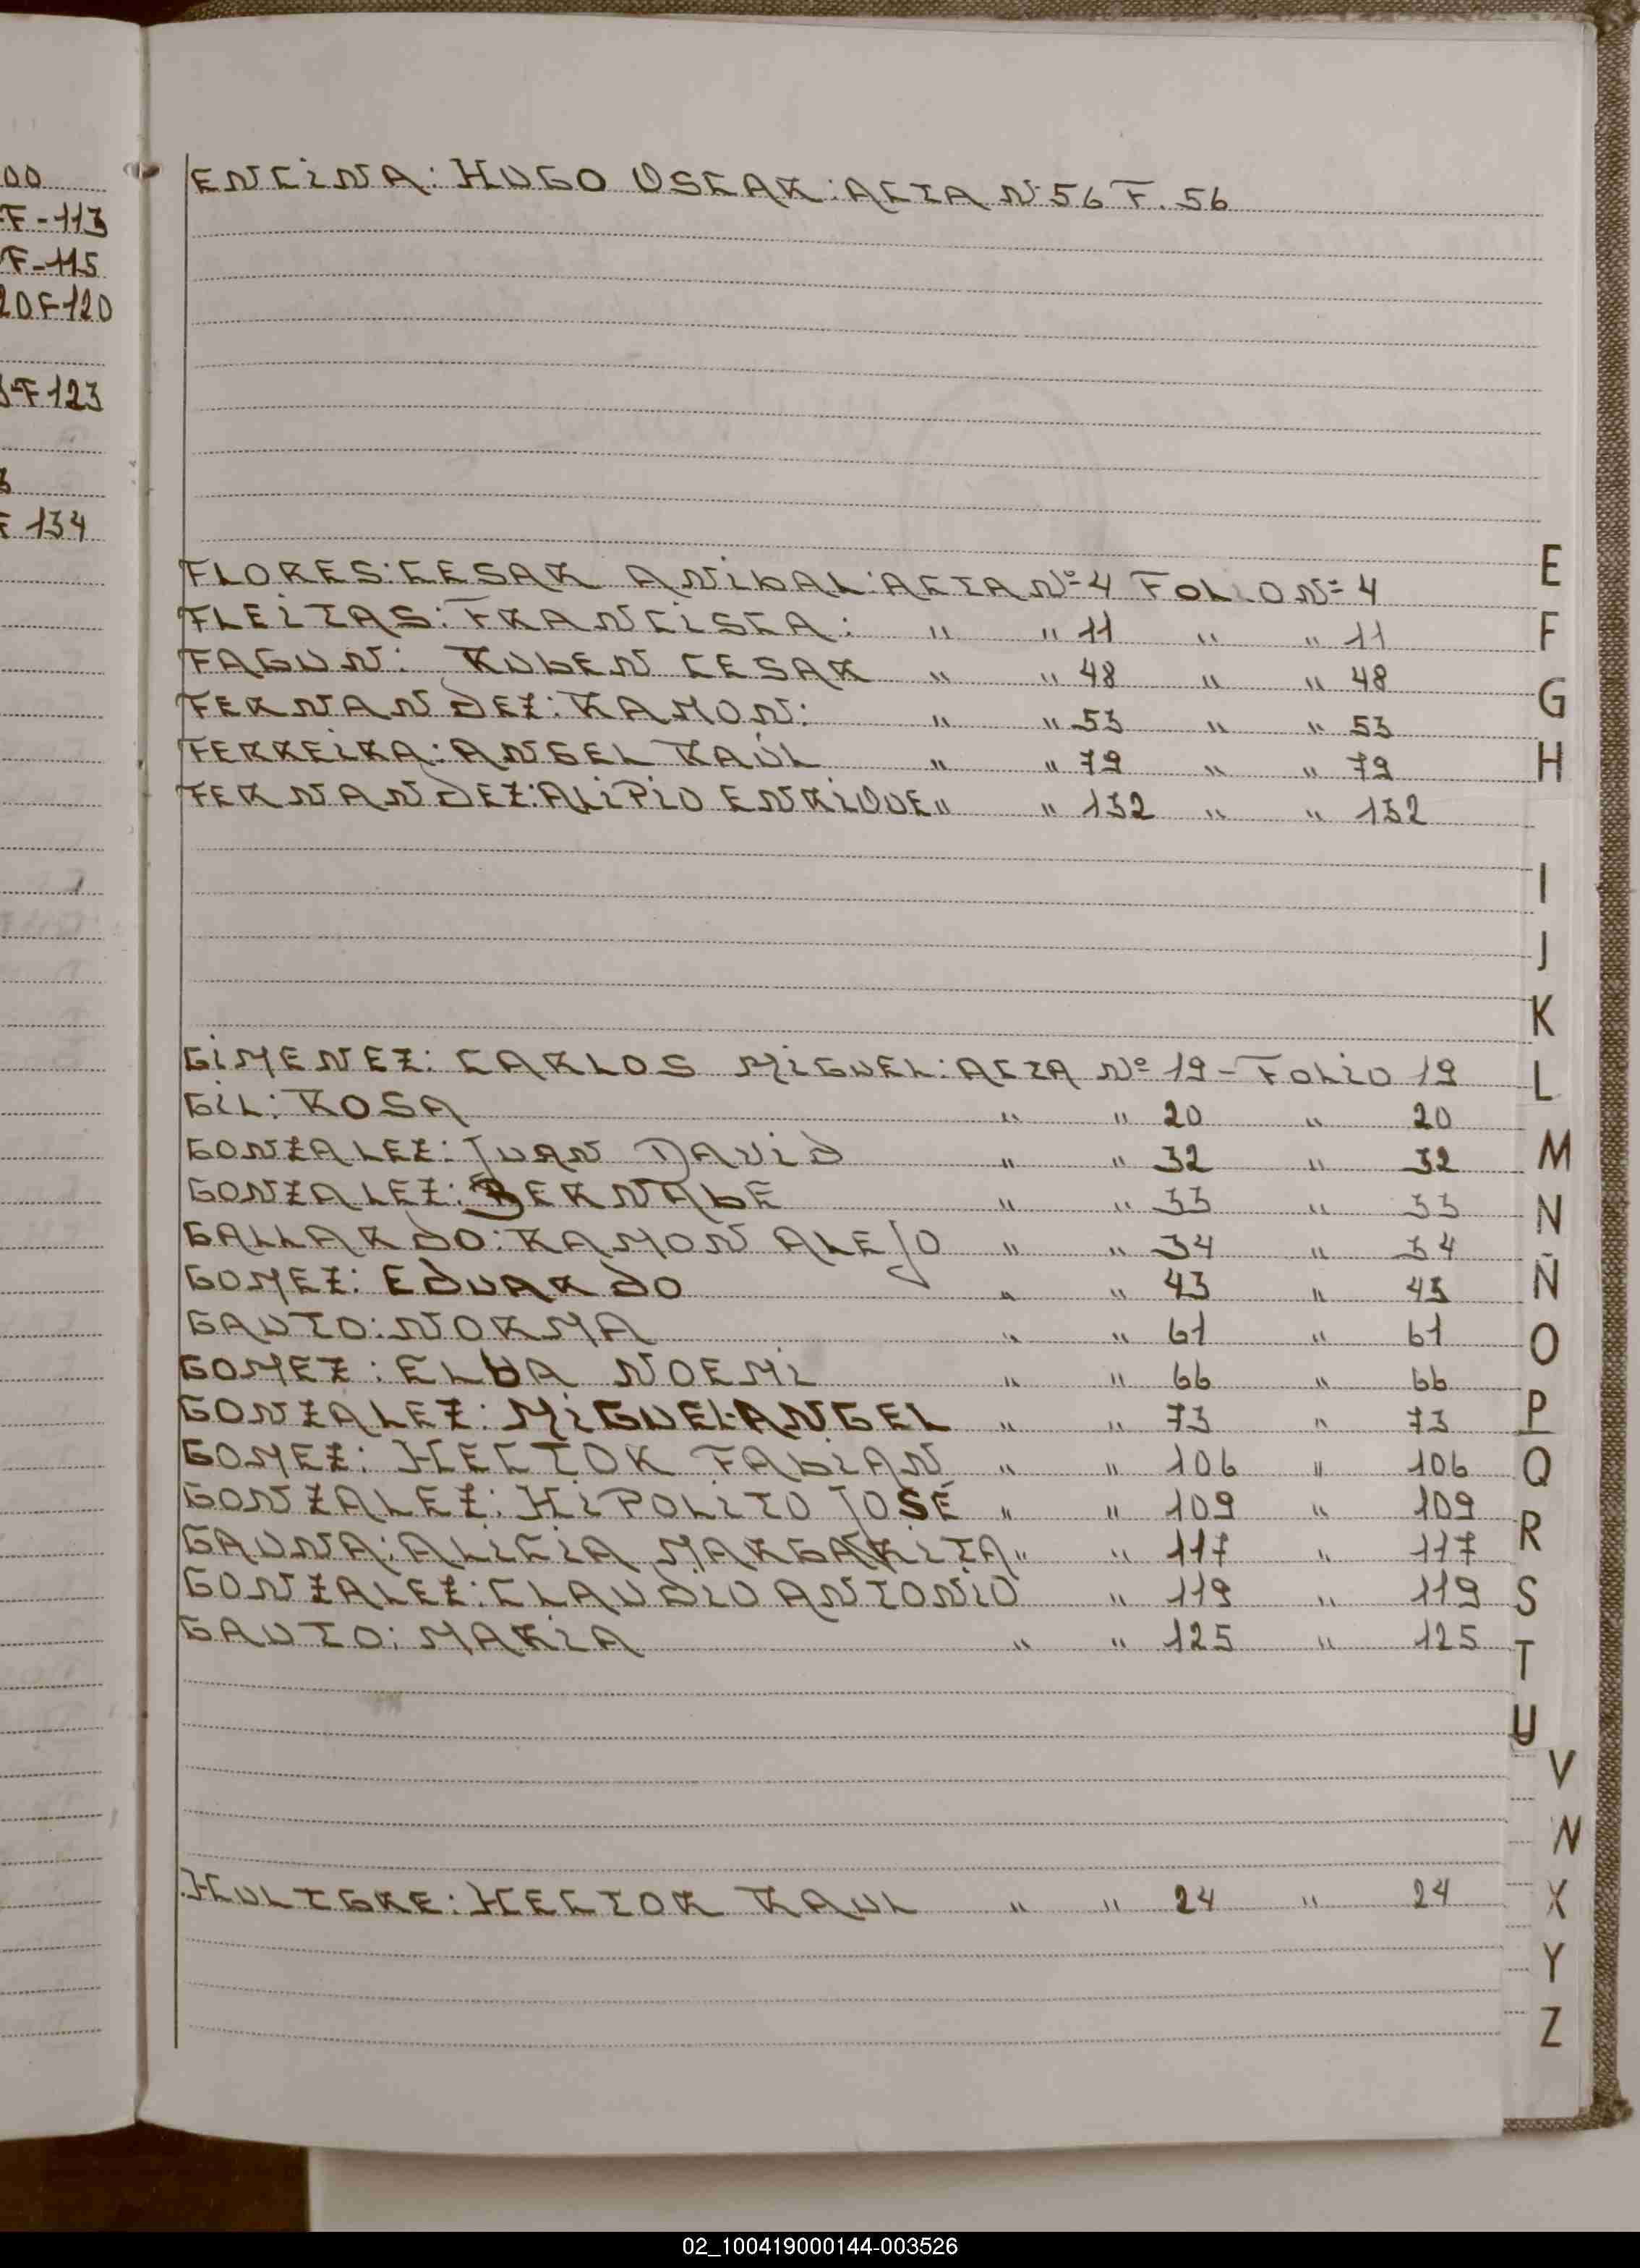 00
F-113
F-115
20F120
F123
F 134
ENCINA: HUGO OSCAR: ACTA Nº 56 F. 56
FLORES: CESAR ANIBAL: ACTA Nº 4 FOLIO Nº 4
FLEITAS: FRANCISCA: " " 11 " " 11
FAGUN: RUBEN CESAR " " 48 " " 48
FERNANDEZ: RAMON: " " 53 " " 53
FERREIRA: ANGEL RAÚL " " 79 " " 79
FERNANDEZ: ALIPIO ENRIQUE " " 132 " " 132
GIMENEZ: CARLOS MIGUEL: ACTA Nº 19 - FOLIO 19
GIL: ROSA " " 20 " 20
GONZALEZ: JUAN DAVID " " 32 " 32
GONZALEZ: BERNABE " " 33 " 33
GALLARDO: RAMON ALEJO " " 34 " 34
GOMEZ: EDUARDO " " 43 " 43
GAUTO: NORMA " " 61 " 61
GOMEZ: ELBA NOEMI " " 66 " 66
GONZALEZ: MIGUEL ANGEL " " 73 " 73
GOMEZ: HECTOR FABIAN " " 106 " 106
GONZALEZ: HIPOLITO JOSÉ " " 109 " 109
GAUNA: ALICIA MARGARITA " " 117 " 117
GONZALEZ: CLAUDIO ANTONIO " 119 " 119
GAUTO: MARIA " " 125 " 125
HULTGRE: HECTOR RAUL " " 24 " 24
E
F
G
H
I
J
K
L
M
N
Ñ
O
P
Q
R
S
T
U
V
W
X
Y
Z
02_100419000144-003526